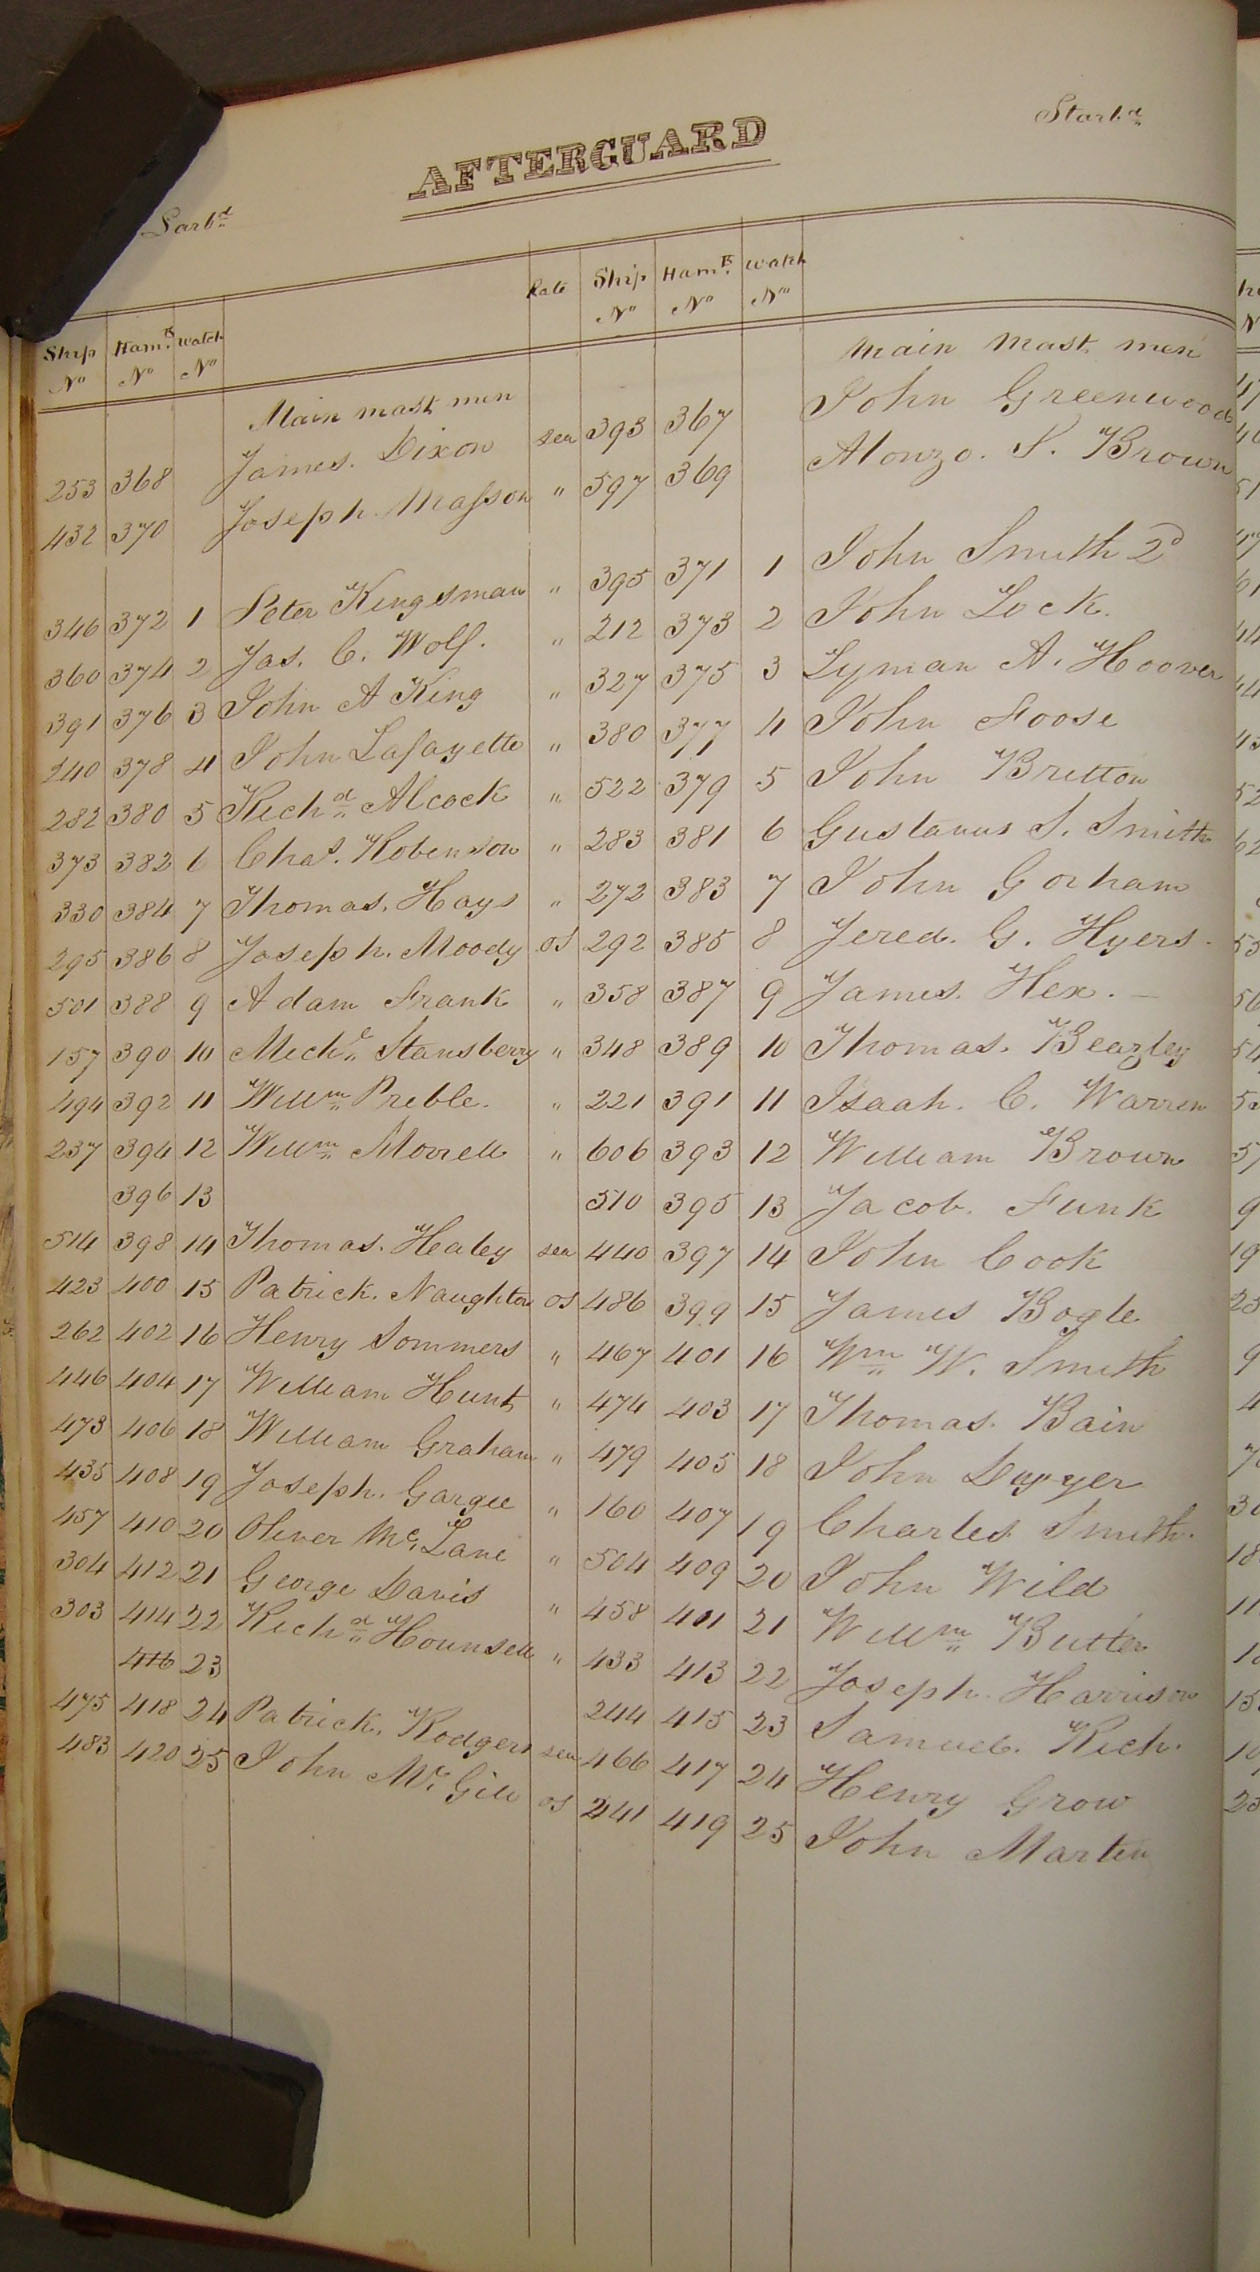 AFTERGUARD
Larbd Starbd
Ship No Hamk No Watch No Rate Ship No Hamk No Watch No
Main mast men Main mast men
253 368 James. Dixon sea 393 367 John Greenwood
432 370 Joseph Masson " 597 369 Alonzo. S. Brown
346 372 1 Peter Kingsman " 395 371 1 John Smith 2d
360 374 2 Jas. C. Wolf. " 212 373 2 John Lock.
391 376 3 John A King " 327 375 3 Lyman A. Hoover
240 378 4 John Lafayette " 380 377 4 John Foose
282 380 5 Richd Alcock " 522 379 5 John Britton
373 382 6 Chas. Robenson " 283 381 6 Gustavus S. Smith
330 384 7 Thomas. Hays " 272 383 7 John Gorham
295 386 8 Joseph. Moody os 292 385 8 Jered. G. Hyers.
501 388 9 Adam Frank " 358 387 9 James. Hex.
157 390 10 Michl Stansberry " 348 389 10 Thomas. Beazley
494 392 11 Willm Preble. " 221 391 11 Isaah. C. Warren
237 394 12 Willm Morrell " 606 393 12 William Brown
396 13 510 395 13 Jacob. Funk
514 398 14 Thomas. Healey sea 440 397 14 John Cook
423 400 15 Patrick. Naughton os 486 399 15 James Bogle
262 402 16 Henry Sommers " 467 401 16 Wm W. Smith
446 404 17 William Hunt " 474 403 17 Thomas. Bain
473 406 18 William Graham " 479 405 18 John Dwyer
435 408 19 Joseph. Gargee " 160 407 19 Charles Smith.
457 410 20 Oliver McLane " 504 409 20 John Wild
304 412 21 George Davis " 458 401 21 Willm Butler
303 414 22 Richd Hounsell " 433 413 22 Joseph. Harrison
416 23 244 415 23 Samuel. Rich.
475 418 24 Patrick. Rodgers sea 466 417 24 Henry Grow
483 420 25 John McGill os 241 419 25 John Martin